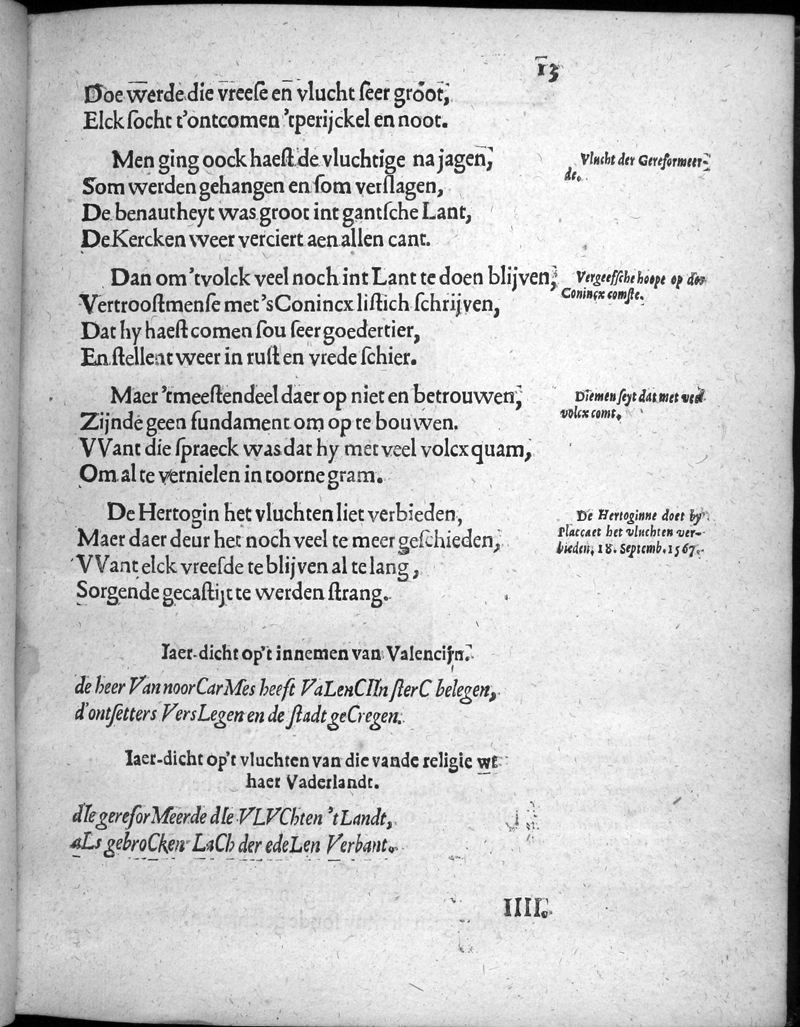 13
Doe werde die vreese en vlucht seer groot,
Elck socht t'ontcomen 'tperijckel en noot.
Men ging oock haest de vluchtige na jagen,
Som werden gehangen en som verslagen,
De benautheyt was groot int gantsche Lant,
De Kercken weer verciert aen allen cant.
Vlucht der Gereformeer-
de.
Dan om 'tvolck veel noch int Lant te doen blijven,
Vertroostmense met 's Conincx listich schrijven,
Dat hy haest comen sou seer goedertier,
En stellent weer in rust en vrede schier.
Vergeefsche hoope op des
Conincx comste.
Maer 'tmeestendeel daer op niet en betrouwen,
Zijnde geen fundament om op te bouwen.
VVant die spraeck was dat hy met veel volcx quam,
Om al te vernielen in toorne gram.
Diemen seyt dat met veel
volcx comt.
De Hertogin het vluchten liet verbieden,
Maer daer deur het noch veel te meer geschieden,
VVant elck vreesde te blijven al te lang,
Sorgende gecastijt te werden strang.
De Hertoginne doet by
Placcaet het vluchten ver-
bieden, 18. Septemb. 1567.
Iaer-dicht op't innemen van Valencijn.
de heer Van noorCarMes heeft VaLenCIIn sterC belegen,
d'ontsetters VersLegen en de stadt geCregen.
Iaer-dicht op't vluchten van die vande religie wt
haer Vaderlandt.
dIe gereforMeerde dIe VLVChten 't Landt,
aLs gebroCken LaCh der edeLen Verbant.
IIII.